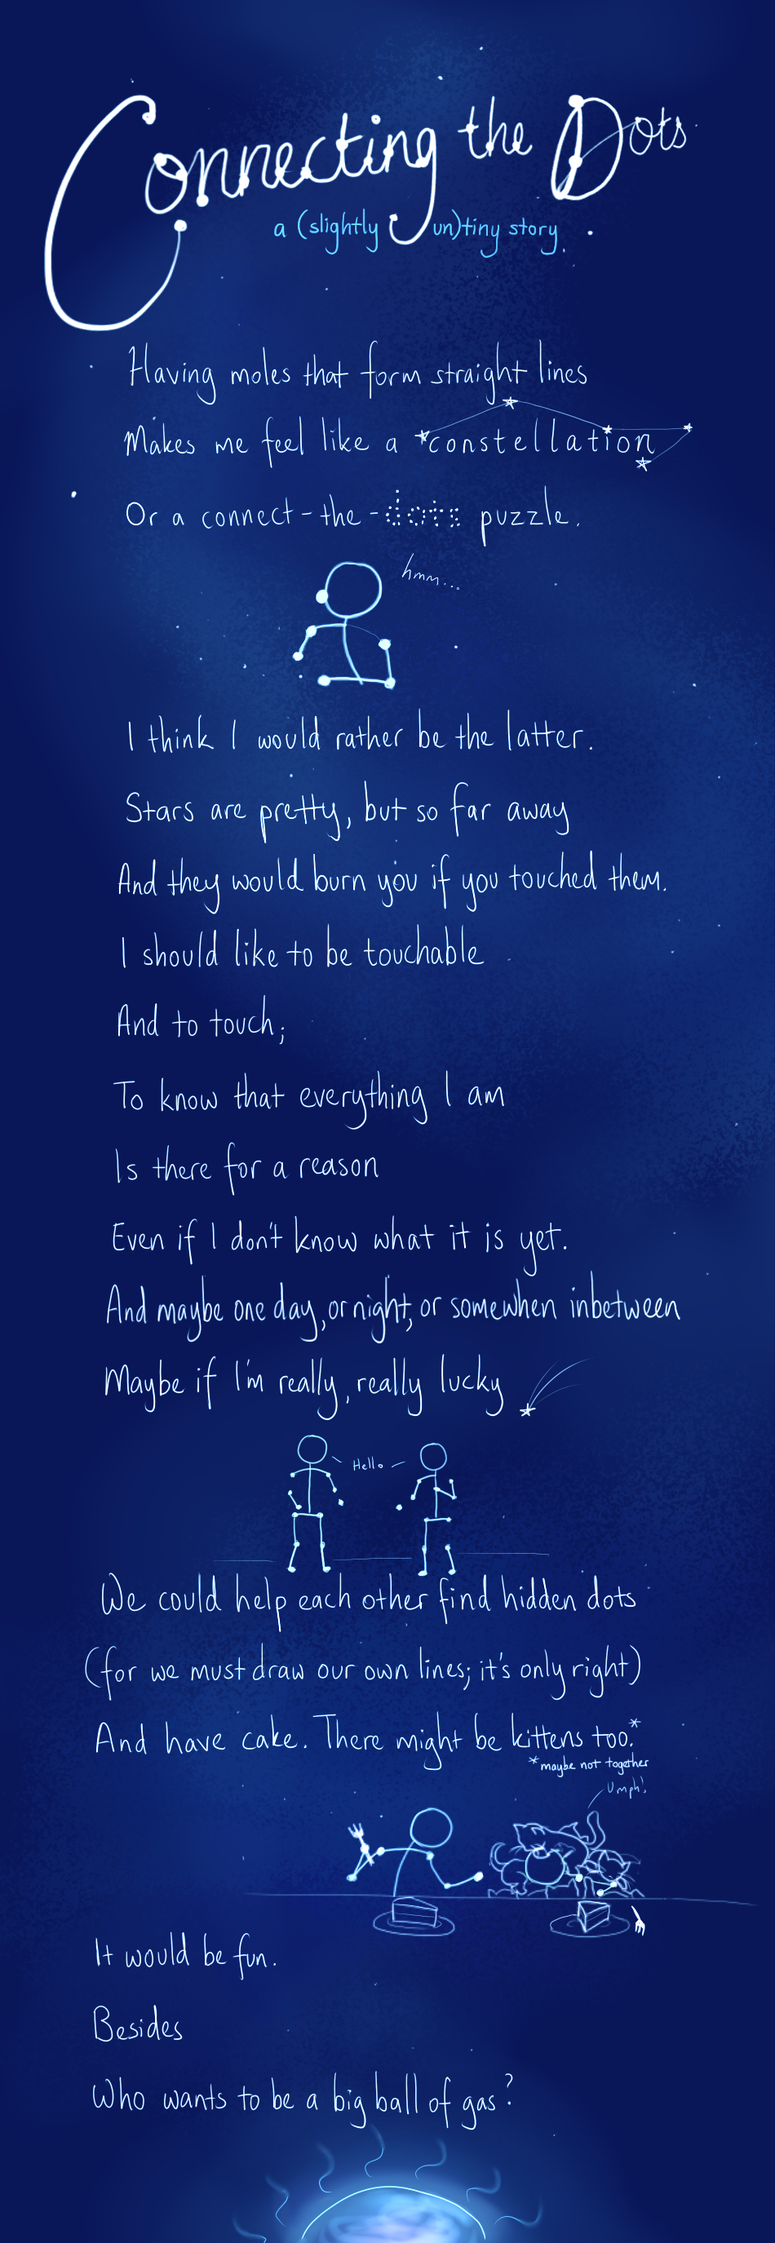 Connecting the Dots
a (slightly un)tiny story.
Having moles that form straight lines
Makes me feel like a constellation
Or a connect-the-dots puzzle.
hmm...
I think I would rather be the latter.
Stars are pretty, but so far away
And they would burn you if you touched them.
I should like to be touchable
And to touch;
To know that everything I am
Is there for a reason
Even if I don't know what it is yet.
And maybe one day, or night, or somewhen inbetween
Maybe if I'm really, really lucky
Hello
We could help each other find hidden dots
(for we must draw our own lines; it's only right)
And have cake. There might be kittens too.*
*maybe not together
Umph!
It would be fun.
Besides
Who wants to be a big ball of gas?